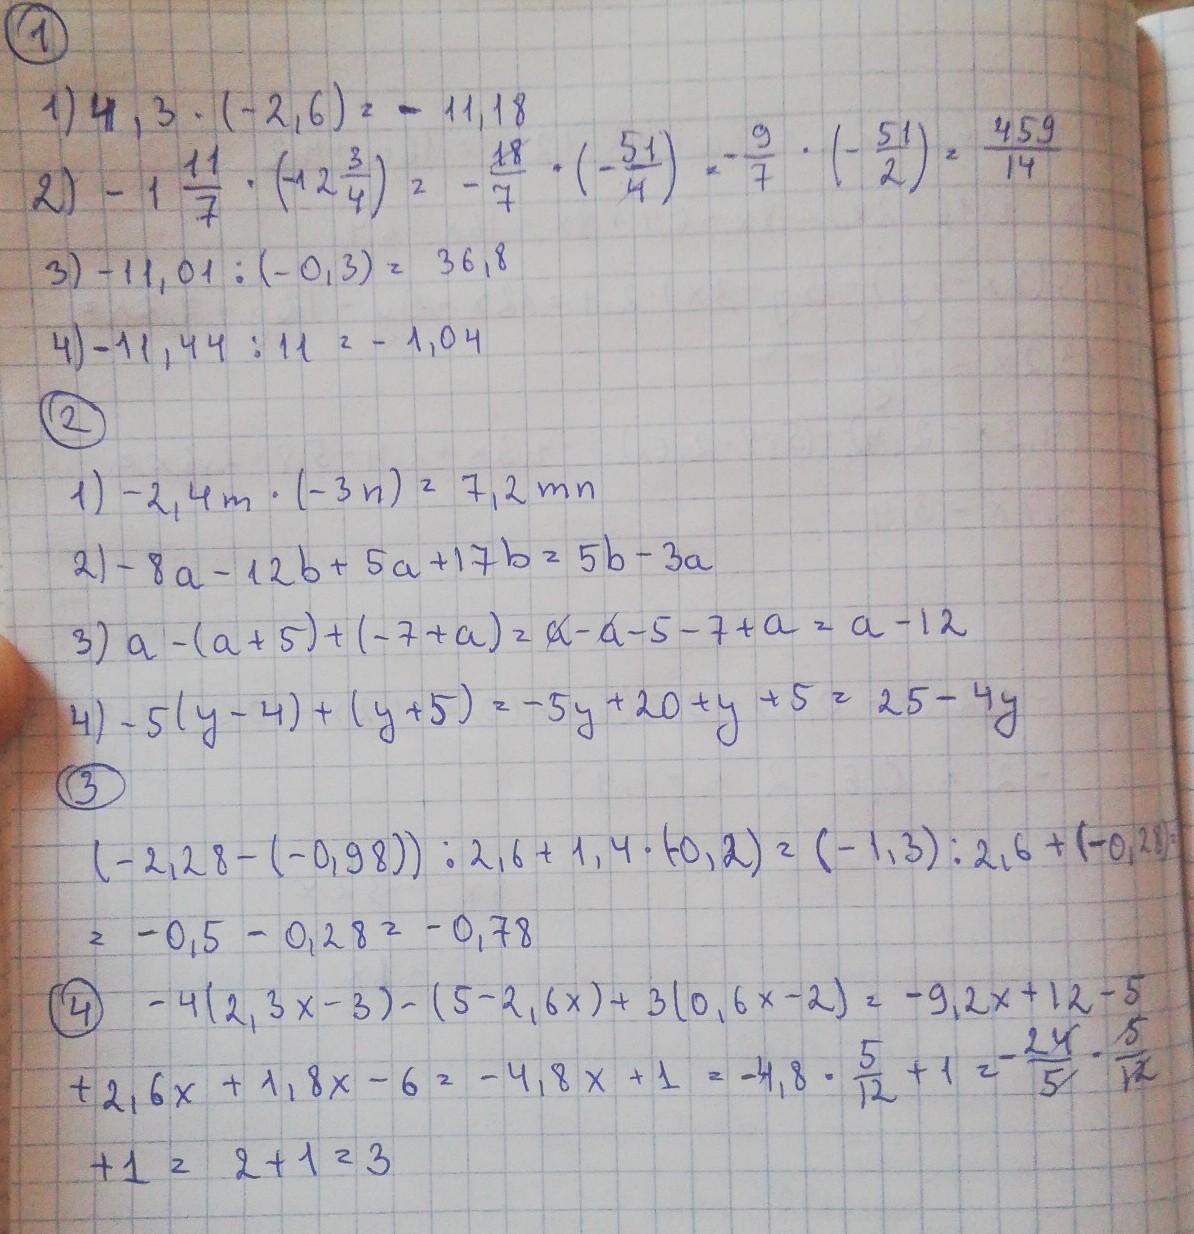 1
1) 4,3 · (-2,6) = - 11,18
2) - 1 11/7 · (-12 3/4) = - 18/7 · (- 51/4) = - 9/7 · (- 51/2) = 459/14
3) -11,01 : (-0,3) = 36,8
4) -11,44 : 11 = - 1,04
2
1) -2,4m · (-3n) = 7,2mn
2) -8a - 12b + 5a + 17b = 5b - 3a
3) a - (a + 5) + (-7 + a) = a - a - 5 - 7 + a = a - 12
4) -5(y - 4) + (y + 5) = -5y + 20 + y + 5 = 25 - 4y
3
(-2,28 - (-0,98)) : 2,6 + 1,4 · (-0,2) = (-1,3) : 2,6 + (-0,28) =
= -0,5 - 0,28 = -0,78
4 -4(2,3x - 3) - (5 - 2,6x) + 3(0,6x - 2) = -9,2x + 12 - 5
+ 2,6x + 1,8x - 6 = -4,8x + 1 = -4,8 · 5/12 + 1 = - 24/5 · 5/12
+ 1 = 2 + 1 = 3